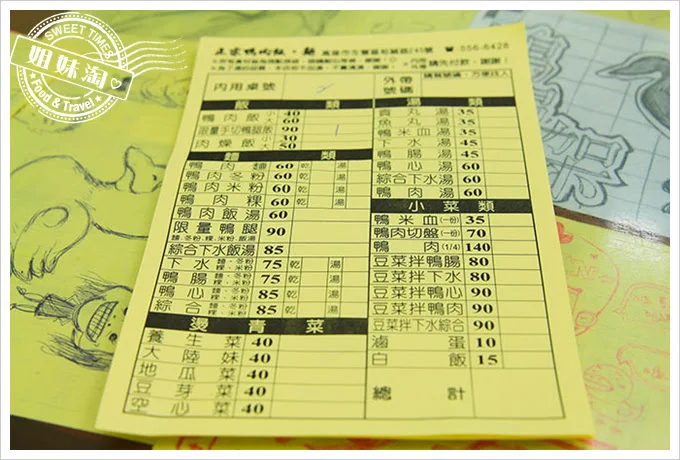 SWEET TIMES
姐妹淘
Food & Travel
正宗鴨肉飯・麵 高雄市左營區裕誠路245號 ☎ 556-6428
內用桌號
外帶號碼
飯 類
鴨肉飯 小 40
大 60
限量手切鴨腿飯 90 1
肉燥飯 小 30
大 50
麵 類
鴨肉麵 60 乾 湯
鴨肉冬粉 60 乾 湯
鴨肉米粉 60 乾 湯
鴨肉粿 60 乾 湯
鴨肉飯湯 60
限量鴨腿 90
麵、冬粉、粿、米粉、飯湯
綜合下水飯湯 85
下水 麵、冬粉 粿、米粉 75 乾 湯
鴨腸 麵、冬粉 粿、米粉 75 乾 湯
鴨心 麵、冬粉 粿、米粉 85 乾 湯
綜合 麵、冬粉 粿、米粉 85 乾 湯
燙青菜
養生菜 40
大陸妹 40
地瓜菜 40
豆芽菜 40
空心菜 40
湯 類
貢丸湯 35
魚丸湯 35
鴨米血湯 35
下水湯 45
鴨腸湯 45
鴨心湯 60
綜合下水湯 60
鴨肉湯 60
小菜類
鴨米血(一份) 35
鴨肉切盤(一份) 70
鴨肉(1/4) 140
豆菜拌鴨腸 80
豆菜拌下水 80
豆菜拌鴨心 90
豆菜拌鴨肉 90
豆菜拌下水綜合 90
滷蛋 10
白飯 15
總計